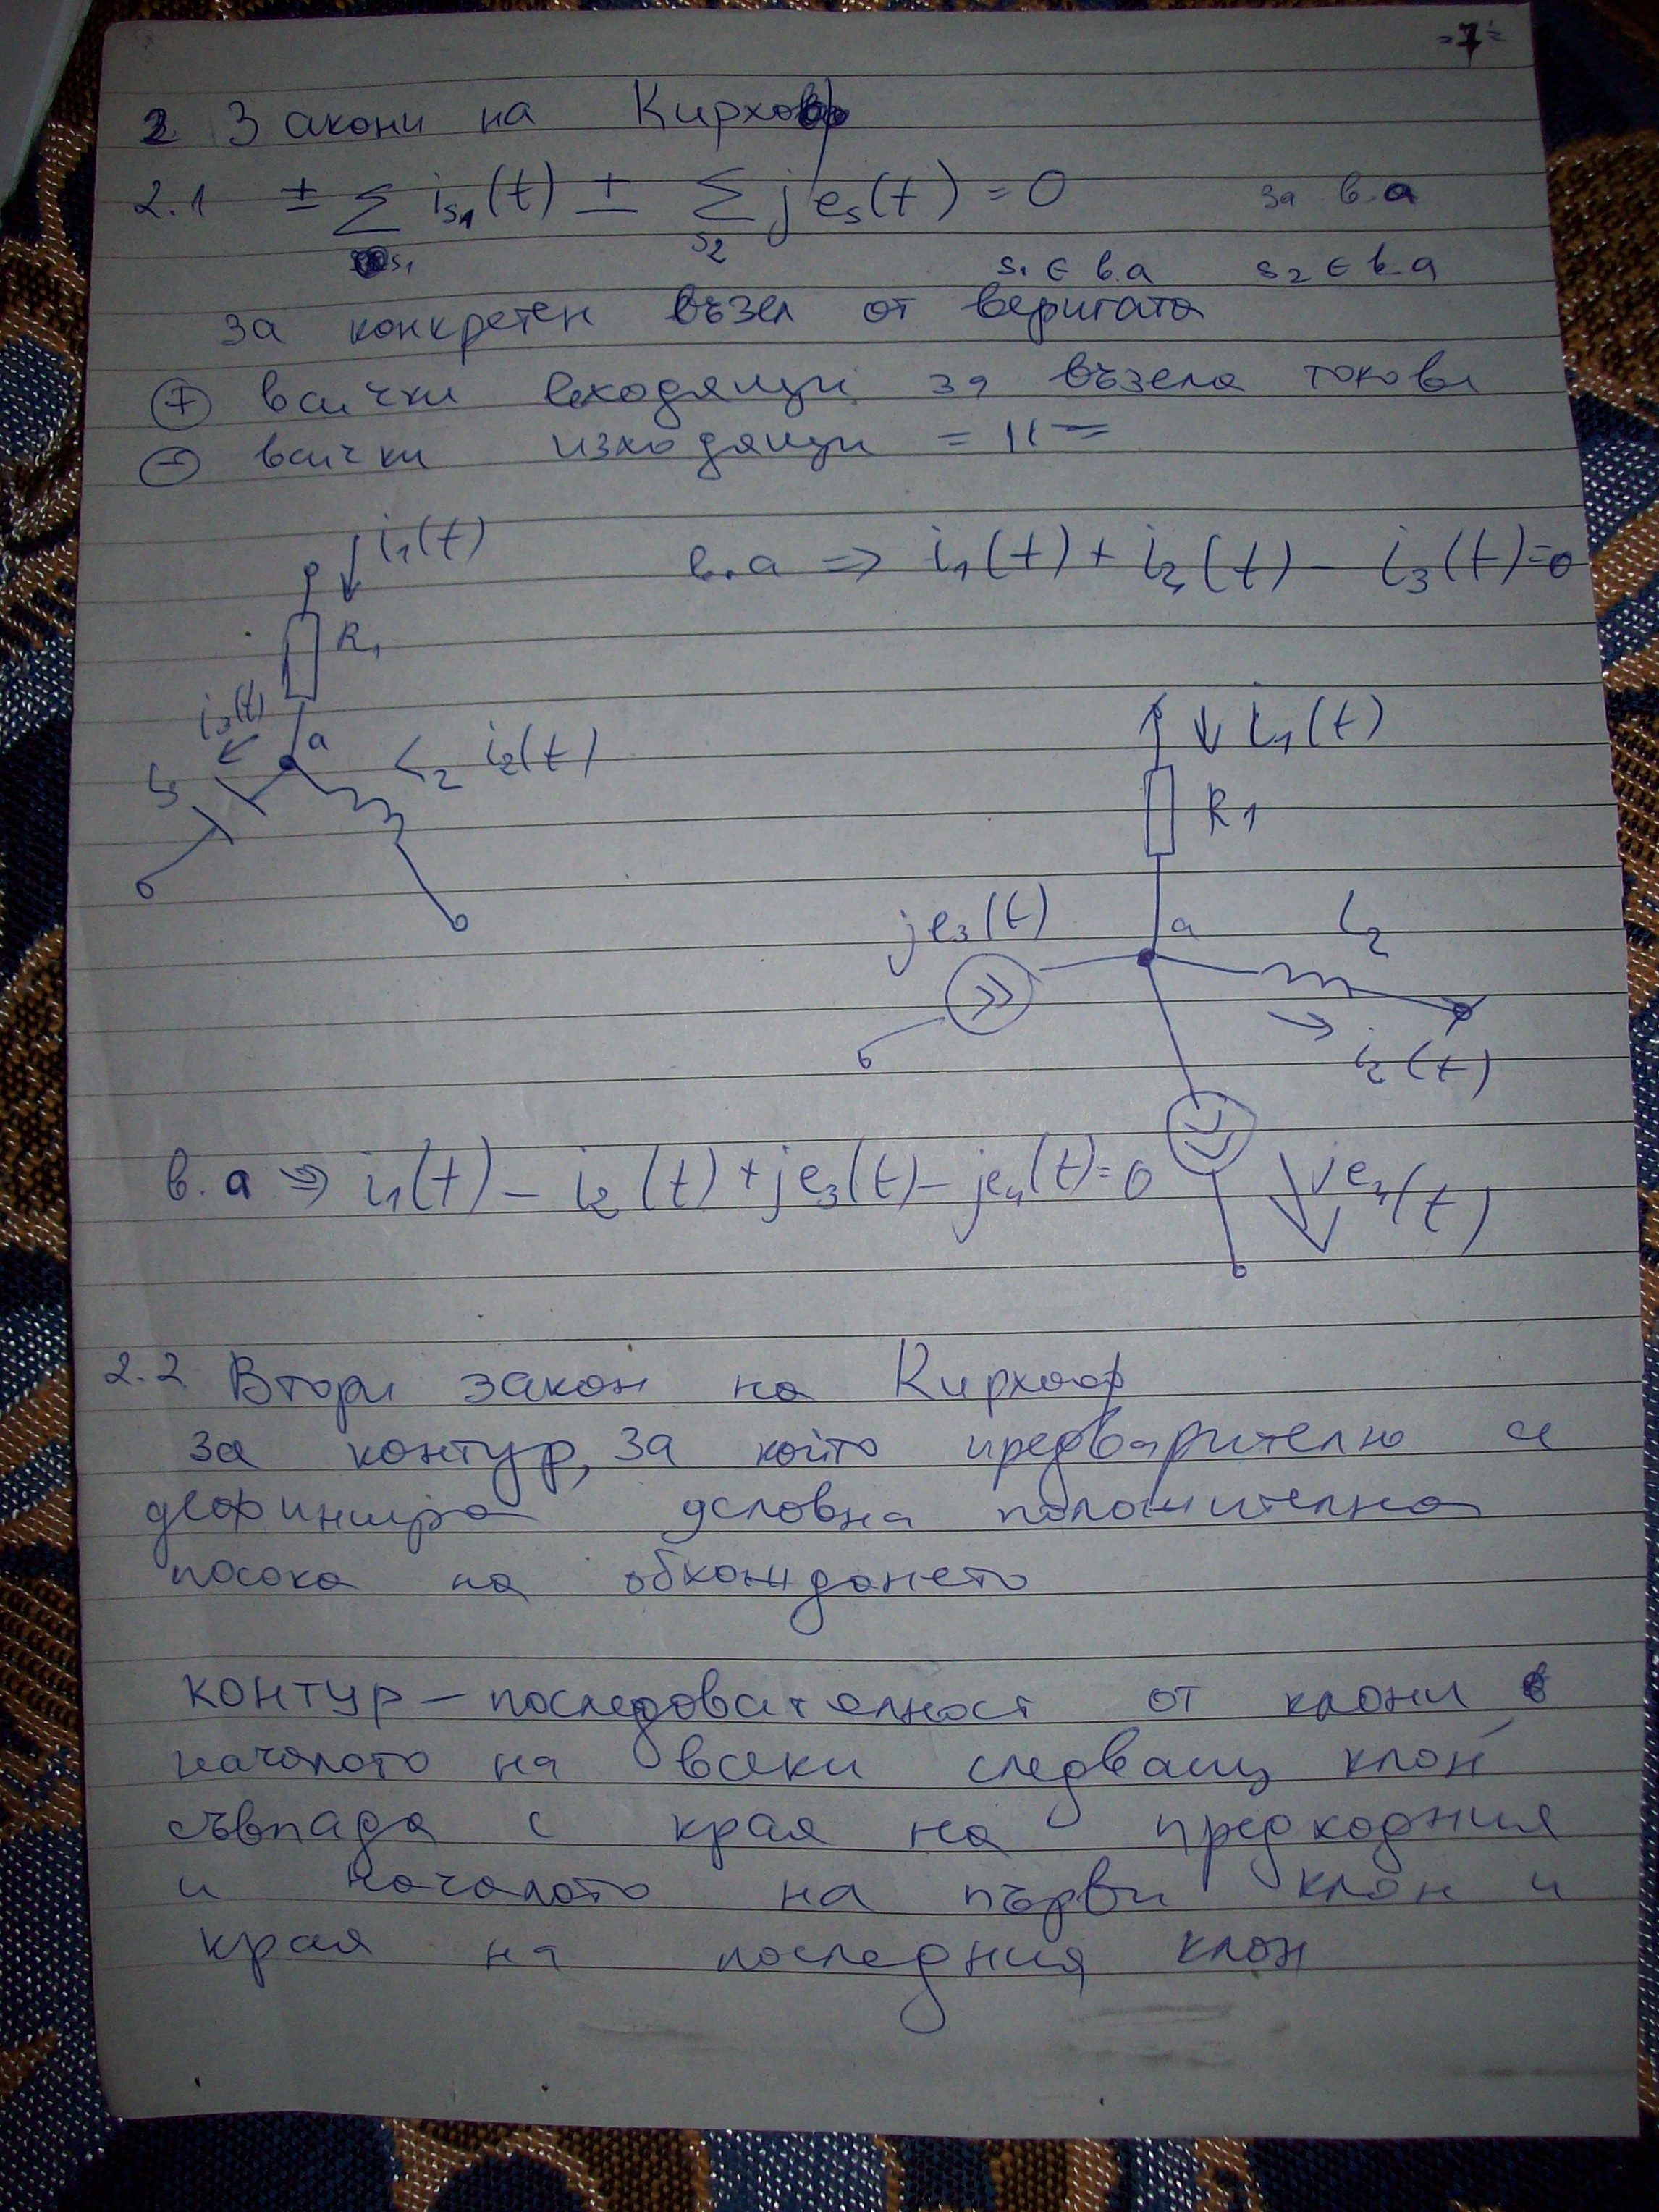 =7=
2. Закони на Кирхоф
2.1 ± ∑ is₁(t) ± ∑ jes(t) = 0 за в.а
s₁ s₂ s₁ ∈ в.а s₂ ∈ в.а
за конкретен възел от веригата
⊕ всички входящи за възела токове
⊖ всички изходящи = 11 =
i₁(t)
в.а ⇒ i₁(t) + i₂(t) - i₃(t)=0
R₁
i₃(t)
a
L₂ i₂(t)
i₁(t)
R₁
je₃(t)
a
L₂
i₂(t)
в.а ⇒ i₁(t) - i₂(t) + je₃(t) - je₄(t)=0
je₄(t)
2.2 Втори закон на Кирхоф
за контур, за който предварително се
дефинира условна положителна
посока на обхождането
контур - последователност от клони
началото на всеки следващ клон
съвпада с края на предходния
и началото на първи клон и
края на последния клон